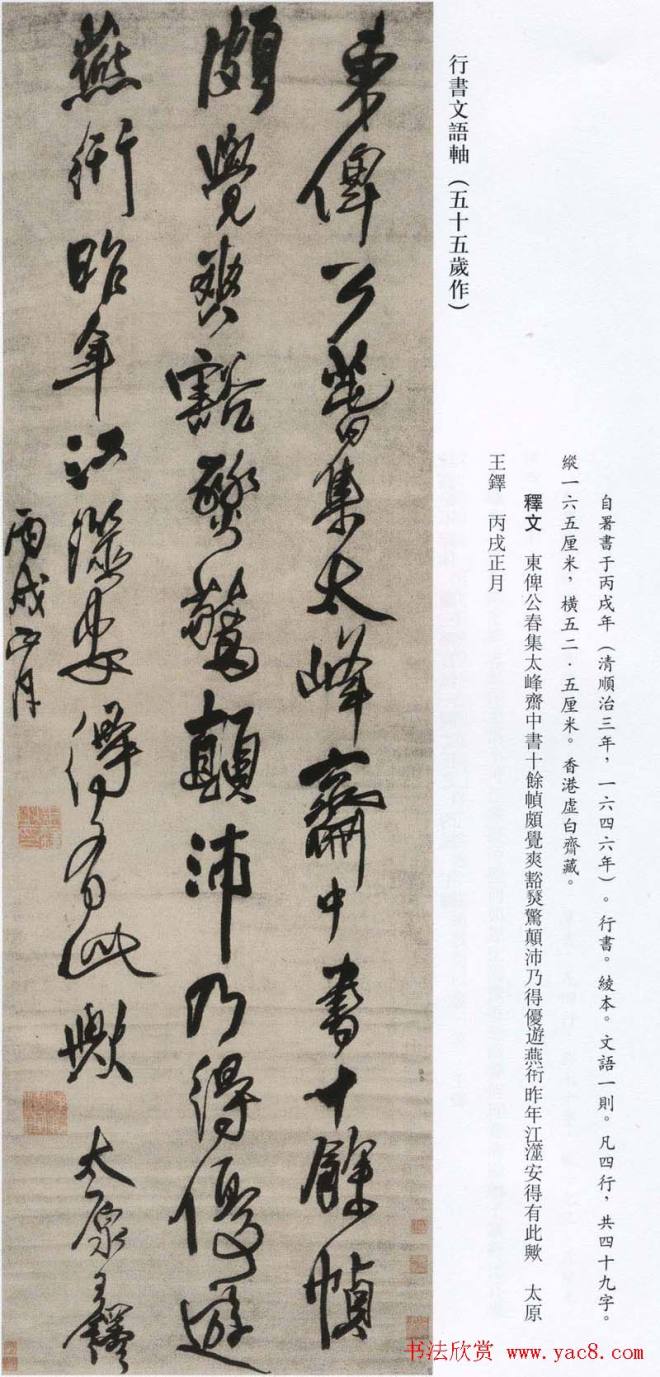 行書文語軸（五十五歲作）
自署書于丙戌年（清順治三年，一六四六年）。行書。綾本。文語一則。凡四行，共四十九字。
縱一六五厘米，橫五二·五厘米。香港虛白齋藏。
釋文　東俾公春集太峰齋中書十餘幀頗覺爽豁燹驚顛沛乃得優遊燕衎昨年江澨安得有此歟　太原
王鐸　丙戌正月
東俾公春集太峰齋中書十餘幀
頗覺爽豁燹驚顛沛乃得優遊
燕衎昨年江澨安得有此歟　太原王鐸
丙戌正月
书法欣赏 www.yac8.com